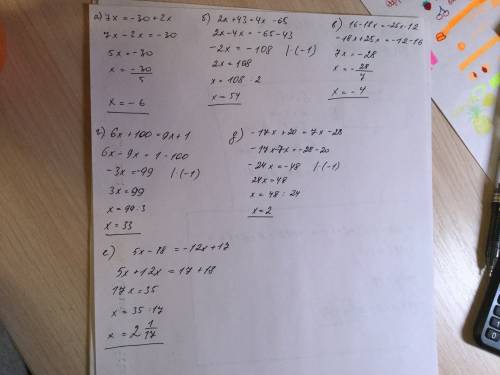 а) 7x = -30 + 2x
7x - 2x = -30
5x = -30
x = -30/5
x = -6
б) 2x + 43 = 4x - 65
2x - 4x = -65 - 43
-2x = -108 |·(-1)
2x = 108
x = 108 : 2
x = 54
в) 16 - 18x = -25x - 12
-18x + 25x = -12 - 16
7x = -28
x = -28/7
x = -4
г) 6x + 100 = 9x + 1
6x - 9x = 1 - 100
-3x = -99 |·(-1)
3x = 99
x = 99 : 3
x = 33
д) -17x + 20 = 7x - 28
-17x - 7x = -28 - 20
-24x = -48 |·(-1)
24x = 48
x = 48 : 24
x = 2
е) 5x - 18 = -12x + 17
5x + 12x = 17 + 18
17x = 35
x = 35 : 17
x = 2 1/17